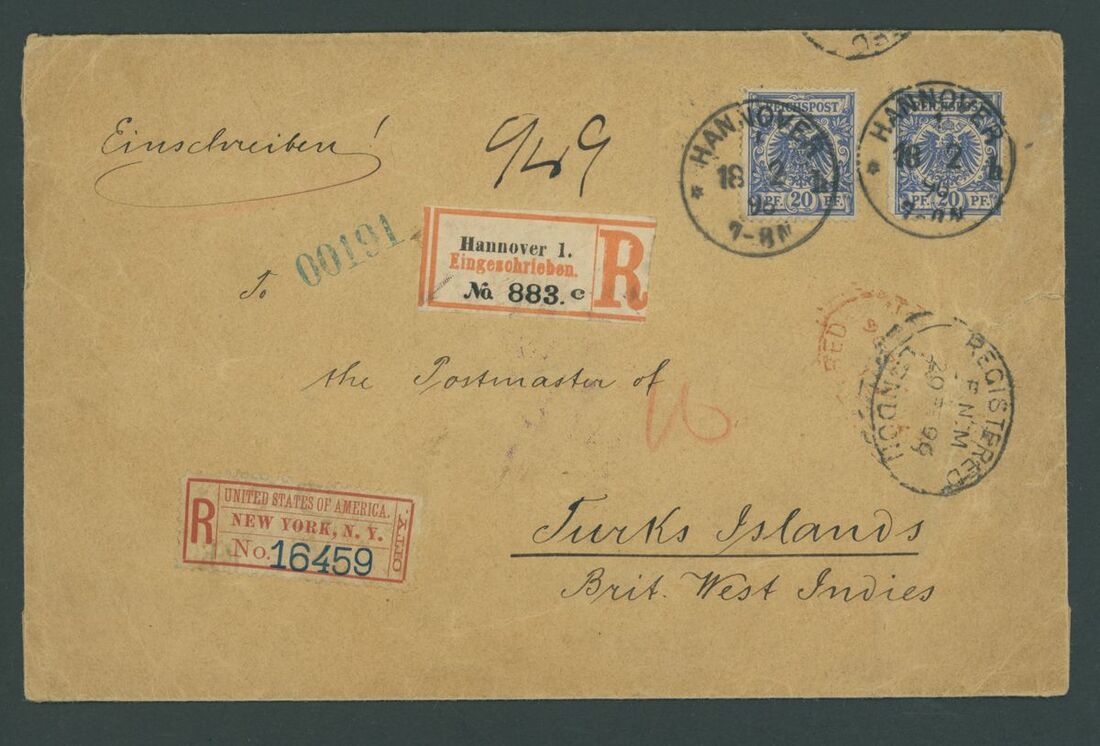 Einschreiben!
949
00191
HANNOVER
1
18 2
96
7-8N
h
REICHSPOST
PF. 20 PF.
HANNOVER
1
18 2
96
7-8N
h
REICHSPOST
PF. 20 PF.
Hannover 1.
Eingeschrieben.
No 883. c
R
To
the Postmaster of
16
REGISTERED
LONDON
F.N.M
20 FE 96
R
UNITED STATES OF AMERICA.
NEW YORK, N. Y.
No. 16459
Turks Islands
Brit. West Indies